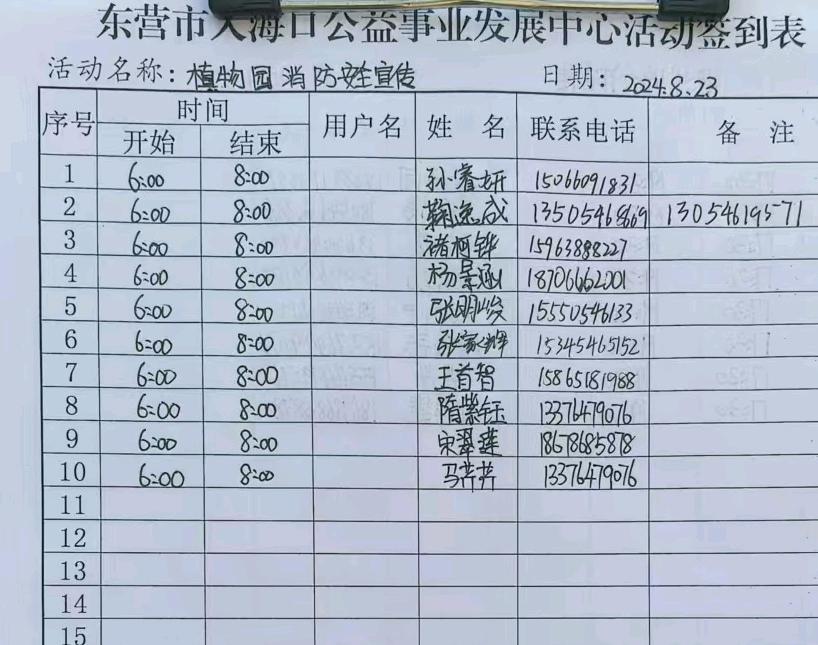 东营市大海口公益事业发展中心活动签到表
活动名称：植物园消防安全宣传 日期：2024.8.23
序号 时间 用户名 姓 名 联系电话 备 注
开始 结束
1 6:00 8:00 孙睿妍 15066091831
2 6:00 8:00 鞠逸成 13505468669 13054619571
3 6:00 8:00 褚柯铧 15963888227
4 6:00 8:00 杨景涵 18706662001
5 6:00 8:00 张明峻 15550546133
6 6:00 8:00 张家辉 15345465152
7 6:00 8:00 王首智 15865181988
8 6:00 8:00 隋紫钰 13376479076
9 6:00 8:00 宋翠莲 18678685878
10 6:00 8:00 马芹芹 13376479076
11
12
13
14
15